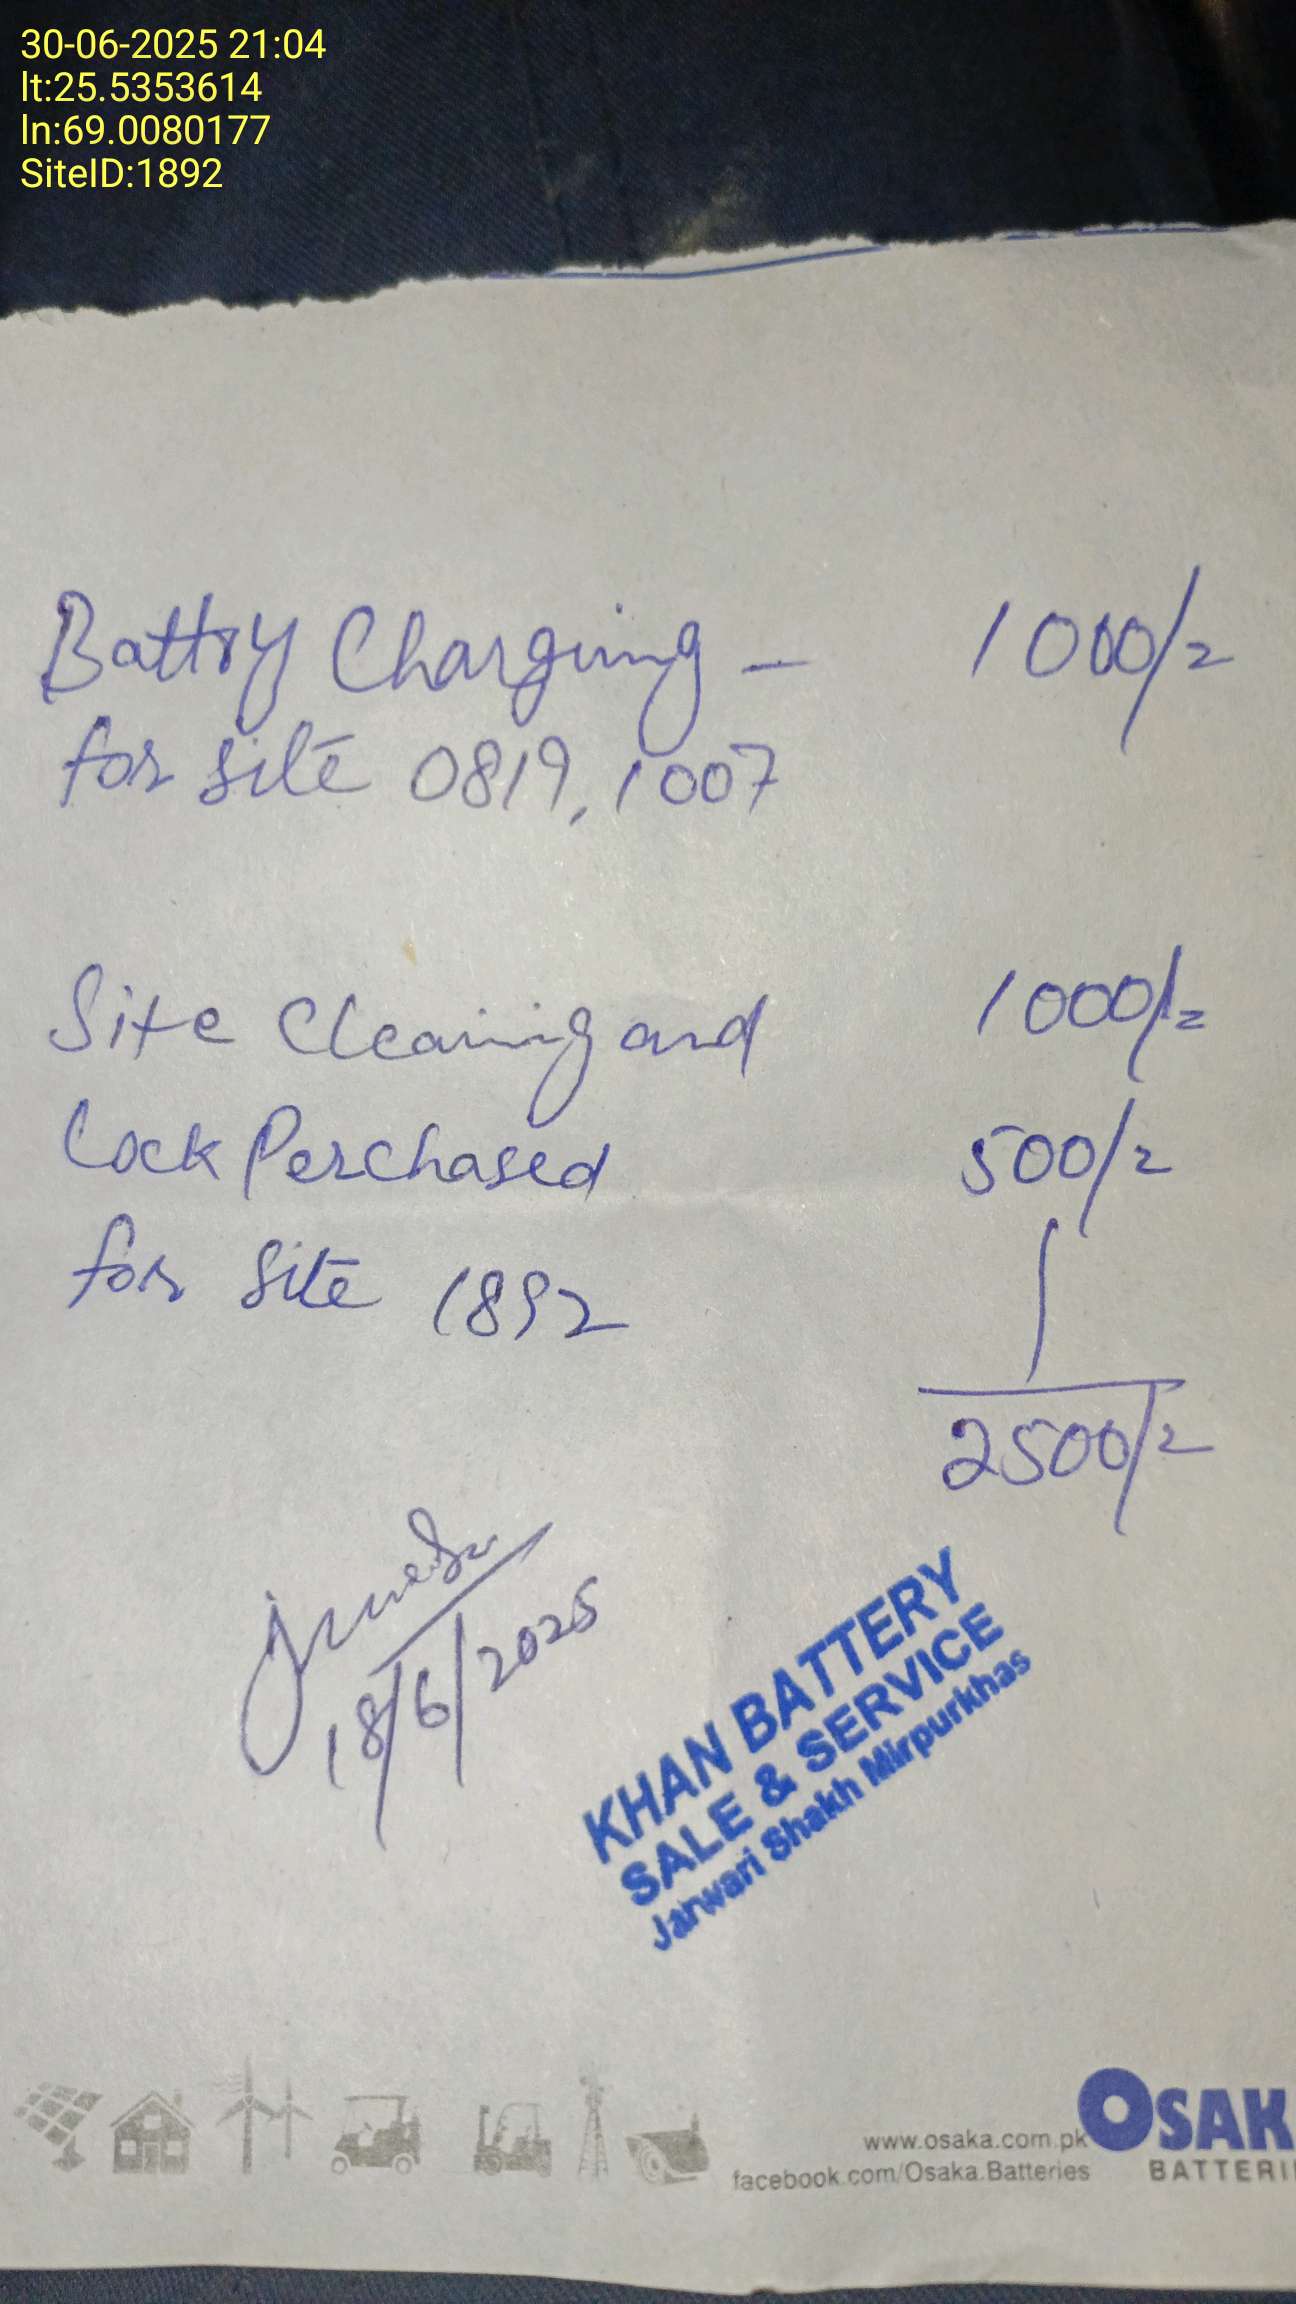 30-06-2025 21:04
lt:25.5353614
ln:69.0080177
SiteID:1892
Battry Charging - 1000/=
for site 0819, 1007
Site Cleaning and 1000/=
Lock Perchased 500/=
for site 1892
2500/=
18/6/2025
KHAN BATTERY
SALE & SERVICE
Jarwari Shakh Mirpurkhas
www.osaka.com.pk
facebook.com/Osaka.Batteries
OSAK
BATTERI